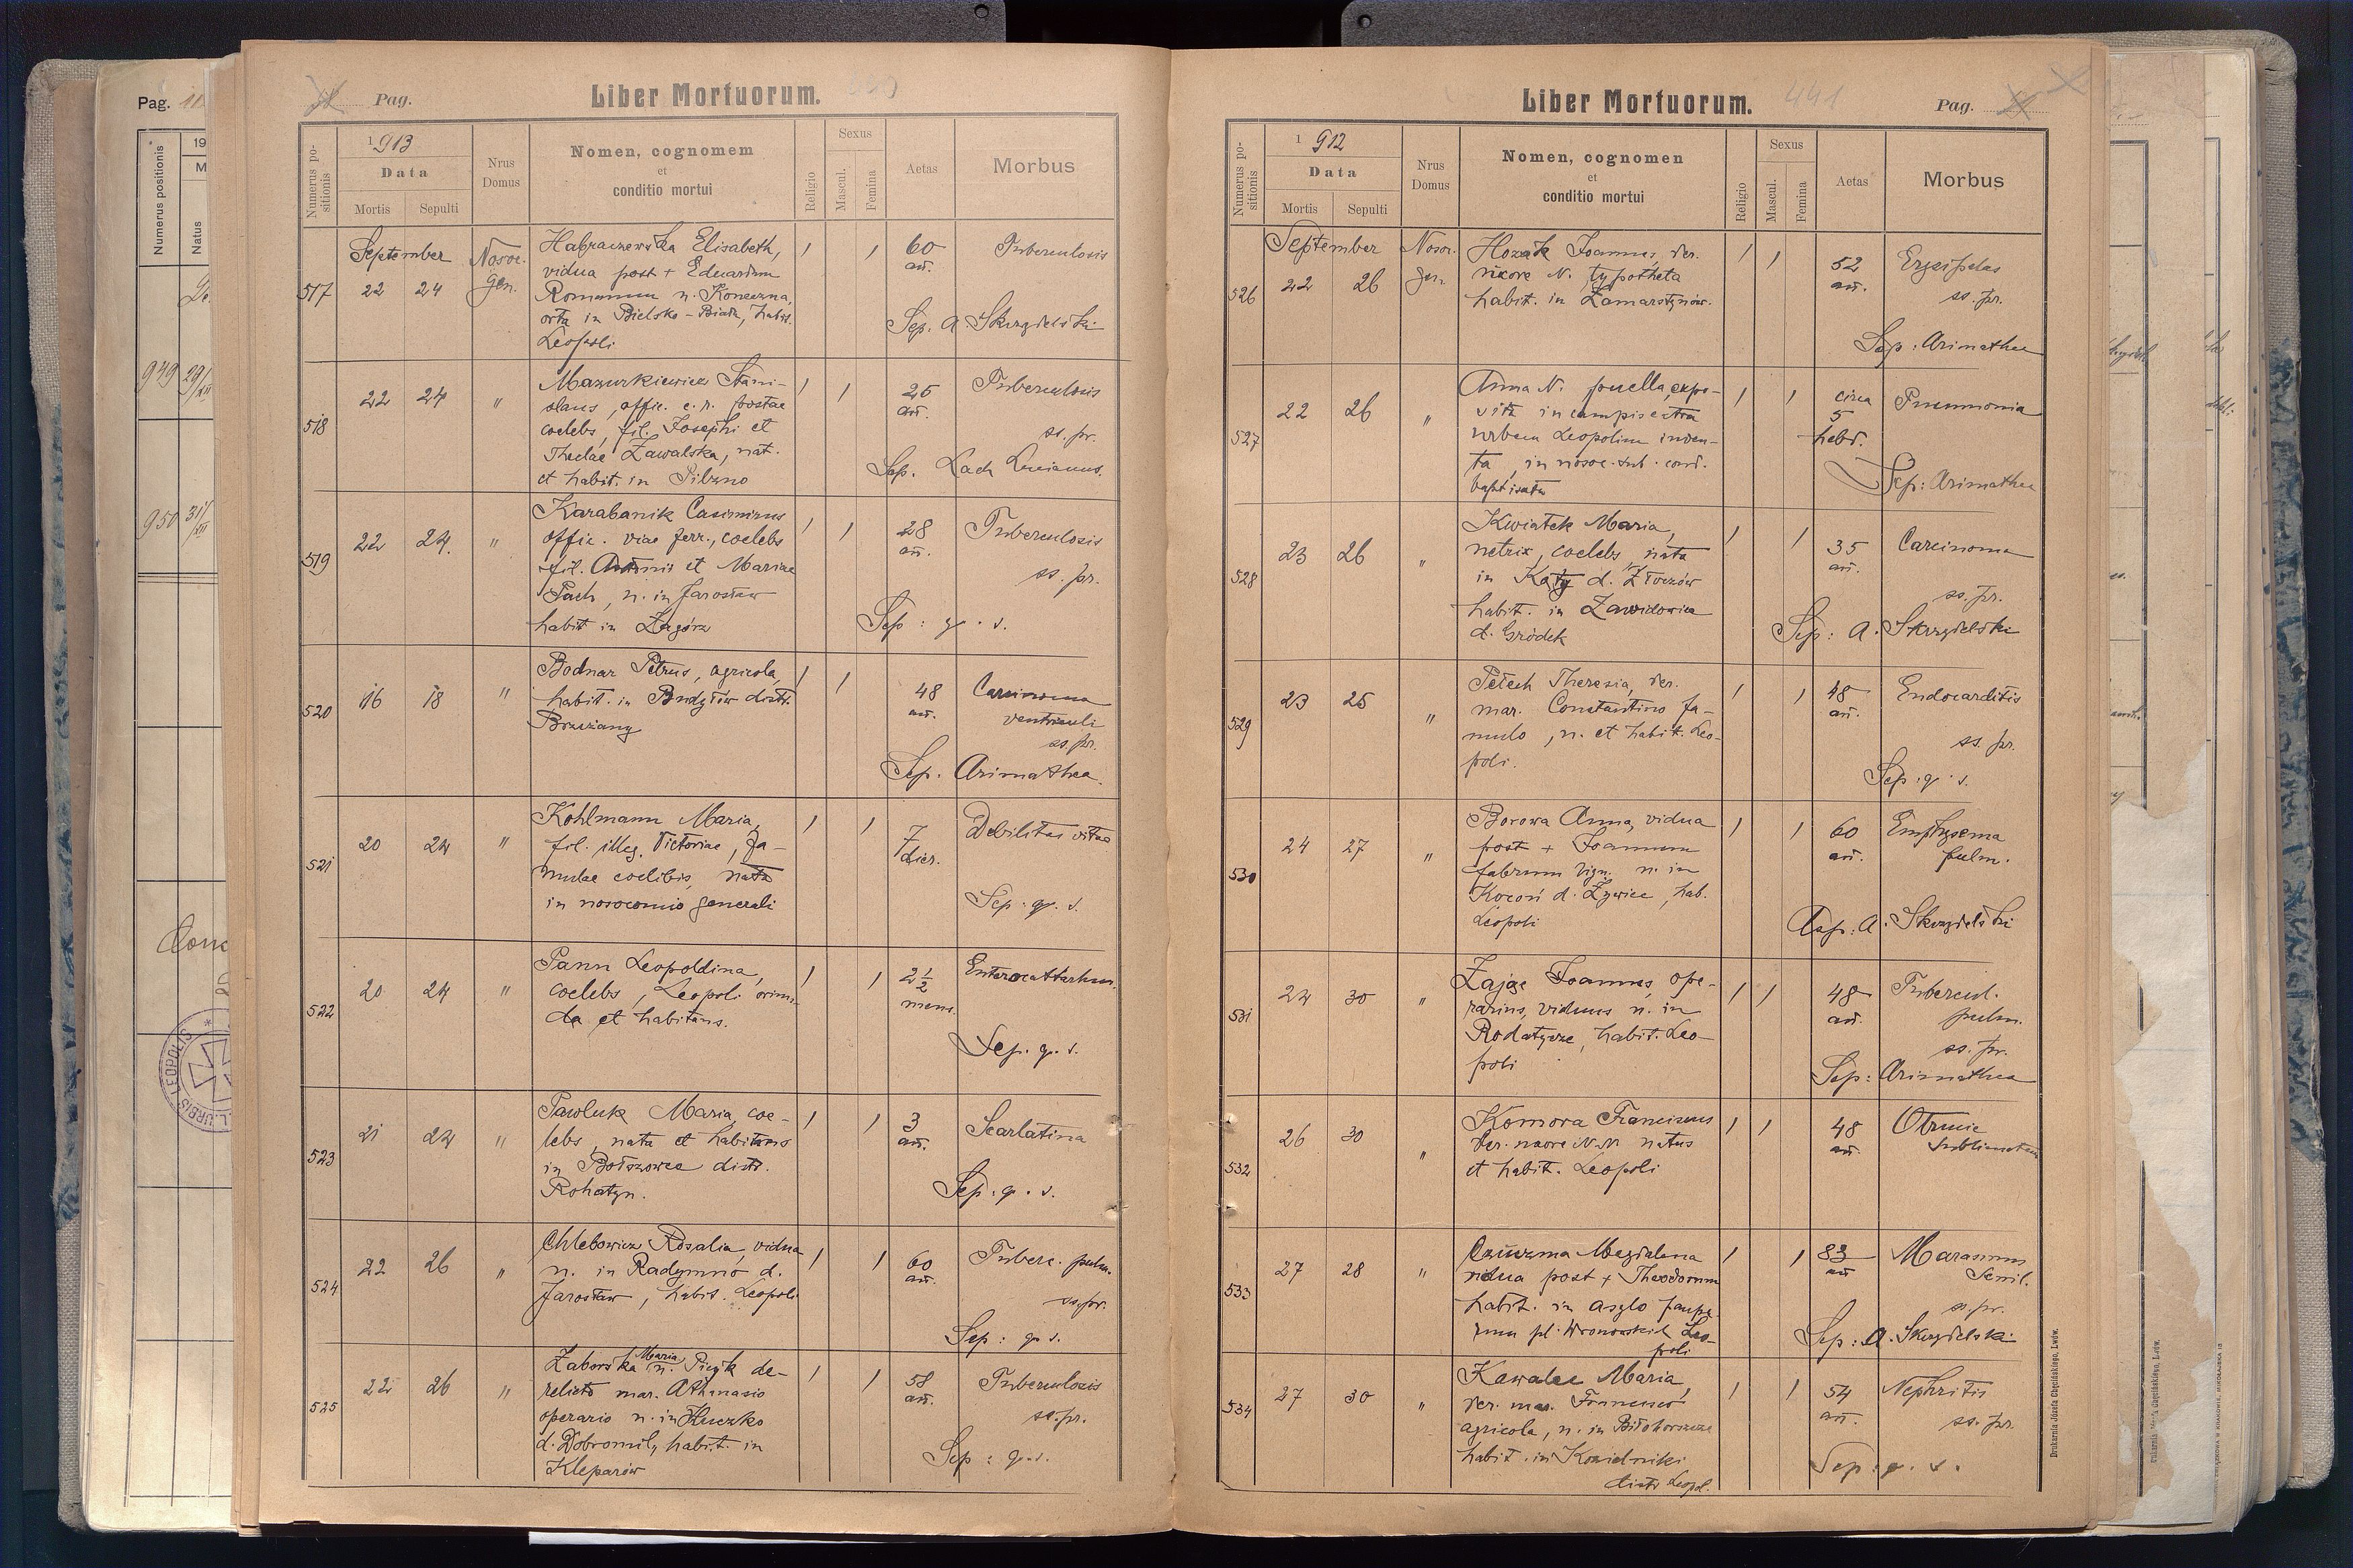 Pag.
Liber Mortuorum.
Numerus positionis
1913
Data
Mortis Sepulti
Nrus Domus
Nomen, cognomem
et
conditio mortui
Religio
Sexus
Mascul.
Femina
Aetas
Morbus
September
Nosoc. gen.
517 22 24
Elisabeth,
vidua post + Eduardum
Romanum n. Konieczna,
orta in Bielsko-Biała, habit.
Leopoli
60 an.
Tuberculosis
Sep. A. Skrzydelski
518 22 24 "
Mazurkiewicz Stani-
slaus, offic. c. r. postae
coelebs, fil. Josephi et
Theclae Zawalska, nat.
et habit. in Pilzno
26 an.
Tuberculosis
ss. pr.
Sep. Lach
519 22 24. "
Karabanik Casimirus
offic. viae ferr., coelebs
fil. Antonii et Mariae
Pach, n. in Jarosław
habit in Zagórz
28 an.
Tuberculosis
ss. pr.
Sep: q. s.
520 16 18 "
Bodnar Petrus, agricola,
habit. in Budyłów distr.
Brzeżany
48 an.
Carcinoma
ventriculi
ss. pr.
Sep. Arimathea.
521 20 24 "
Kohlmann Maria,
fil. illeg. Victoriae, fa-
mulae coelibis, nata
in nosocomio generali
7 dier.
Debilitas vitae
Sep: q. s.
522 20 24 "
Pann Leopoldina,
coelebs, Leopoli oriun-
da et habitans.
2 1/2 mens.
Sep. q. s.
523 21 24 "
Pawluk Maria, coe-
lebs, nata et habitans
in Bołszowce distr.
Rohatyn.
3 an.
Scarlatina
Sep: q. s.
524 22 26 "
Chlebowicz Rosalia, vidua
n. in Radymno d.
Jarosław, habit. Leopoli
60 an.
Tuberc. pulm.
ss. pr.
Sep: q. s.
525 22 26 "
Zaborska Maria n. de-
relicta mar. Athanasio
operario n. in Huczko
d. Dobromil, habit. in
Kleparów
58 an.
Tuberculosis
ss. pr.
Sep: q. s.
Liber Mortuorum.
441
Pag.
Numerus positionis
1912
Data
Mortis Sepulti
Nrus Domus
Nomen, cognomen
et
conditio mortui
Religio
Sexus
Mascul.
Femina
Aetas
Morbus
September
Nosoc. gen.
526 22 26
Hozak Joannes, der.
uxore N. typotheta
habit. in Zamarstynów.
52 an.
Erysipelas
ss. pr.
Sep: Arimathea
527 22 26 "
Anna N. puella, expo-
sita in campis extra
urbem Leopolim inven-
ta, in nosoc. sub. cond.
baptisata
circa 5 hebd.
Pneumonia
Sep: Arimathea
528 23 26 "
Kwiatek Maria,
netrix, coelebs, nata
in Kąty d. Złoczów
habit. in Zawidowice
d. Gródek
35 an.
Carcinoma
ss. pr.
Sep: A. Skrzydelski
529 23 25 "
Petech Theresia, der.
mar. Constantino fa-
mulo, n. et habit. Leo-
poli.
48 an.
Endocarditis
ss. pr.
Sep: q. s.
530 24 27 "
Borowa Anna, vidua
post + Joannem
fabrum lign. n. in
Kocoń d. Żywiec, hab.
Leopoli
60 an.
Emphysema
pulm.
Sep: A. Skrzydelski
531 24 30 "
Zając Joannes, ope-
rarius, viduus n. in
Rodatycze, habit. Leo-
poli
48 an.
Tubercul.
pulm.
ss. pr.
Sep: Arimathea
532 26 30 "
Komora Franciscus
der. uxore N.N. natus
et habit. Leopoli
48 an.
Otrucie
sublimatem
533 27 28 "
Magdalena
vidua post + Theodorum
habit. in asylo paupe-
rum pl. Wronowskich Leo-
poli
83 an
Marasmus
Senil.
ss. pr.
Sep: A. Skrzydelski
534 27 30 "
Kawalec Maria,
der. mar. Francisco
agricola, n. in Biłohorszcze
habit. in Kozielniki
distr. Leopol.
54 an.
Nephritis
ss. pr.
Sep: q. s.
Drukarnia Józefa Chęcińskiego, Lwów.
Pag.
Numerus positionis
19
M
Natus
949 29/XII
950 31/XII